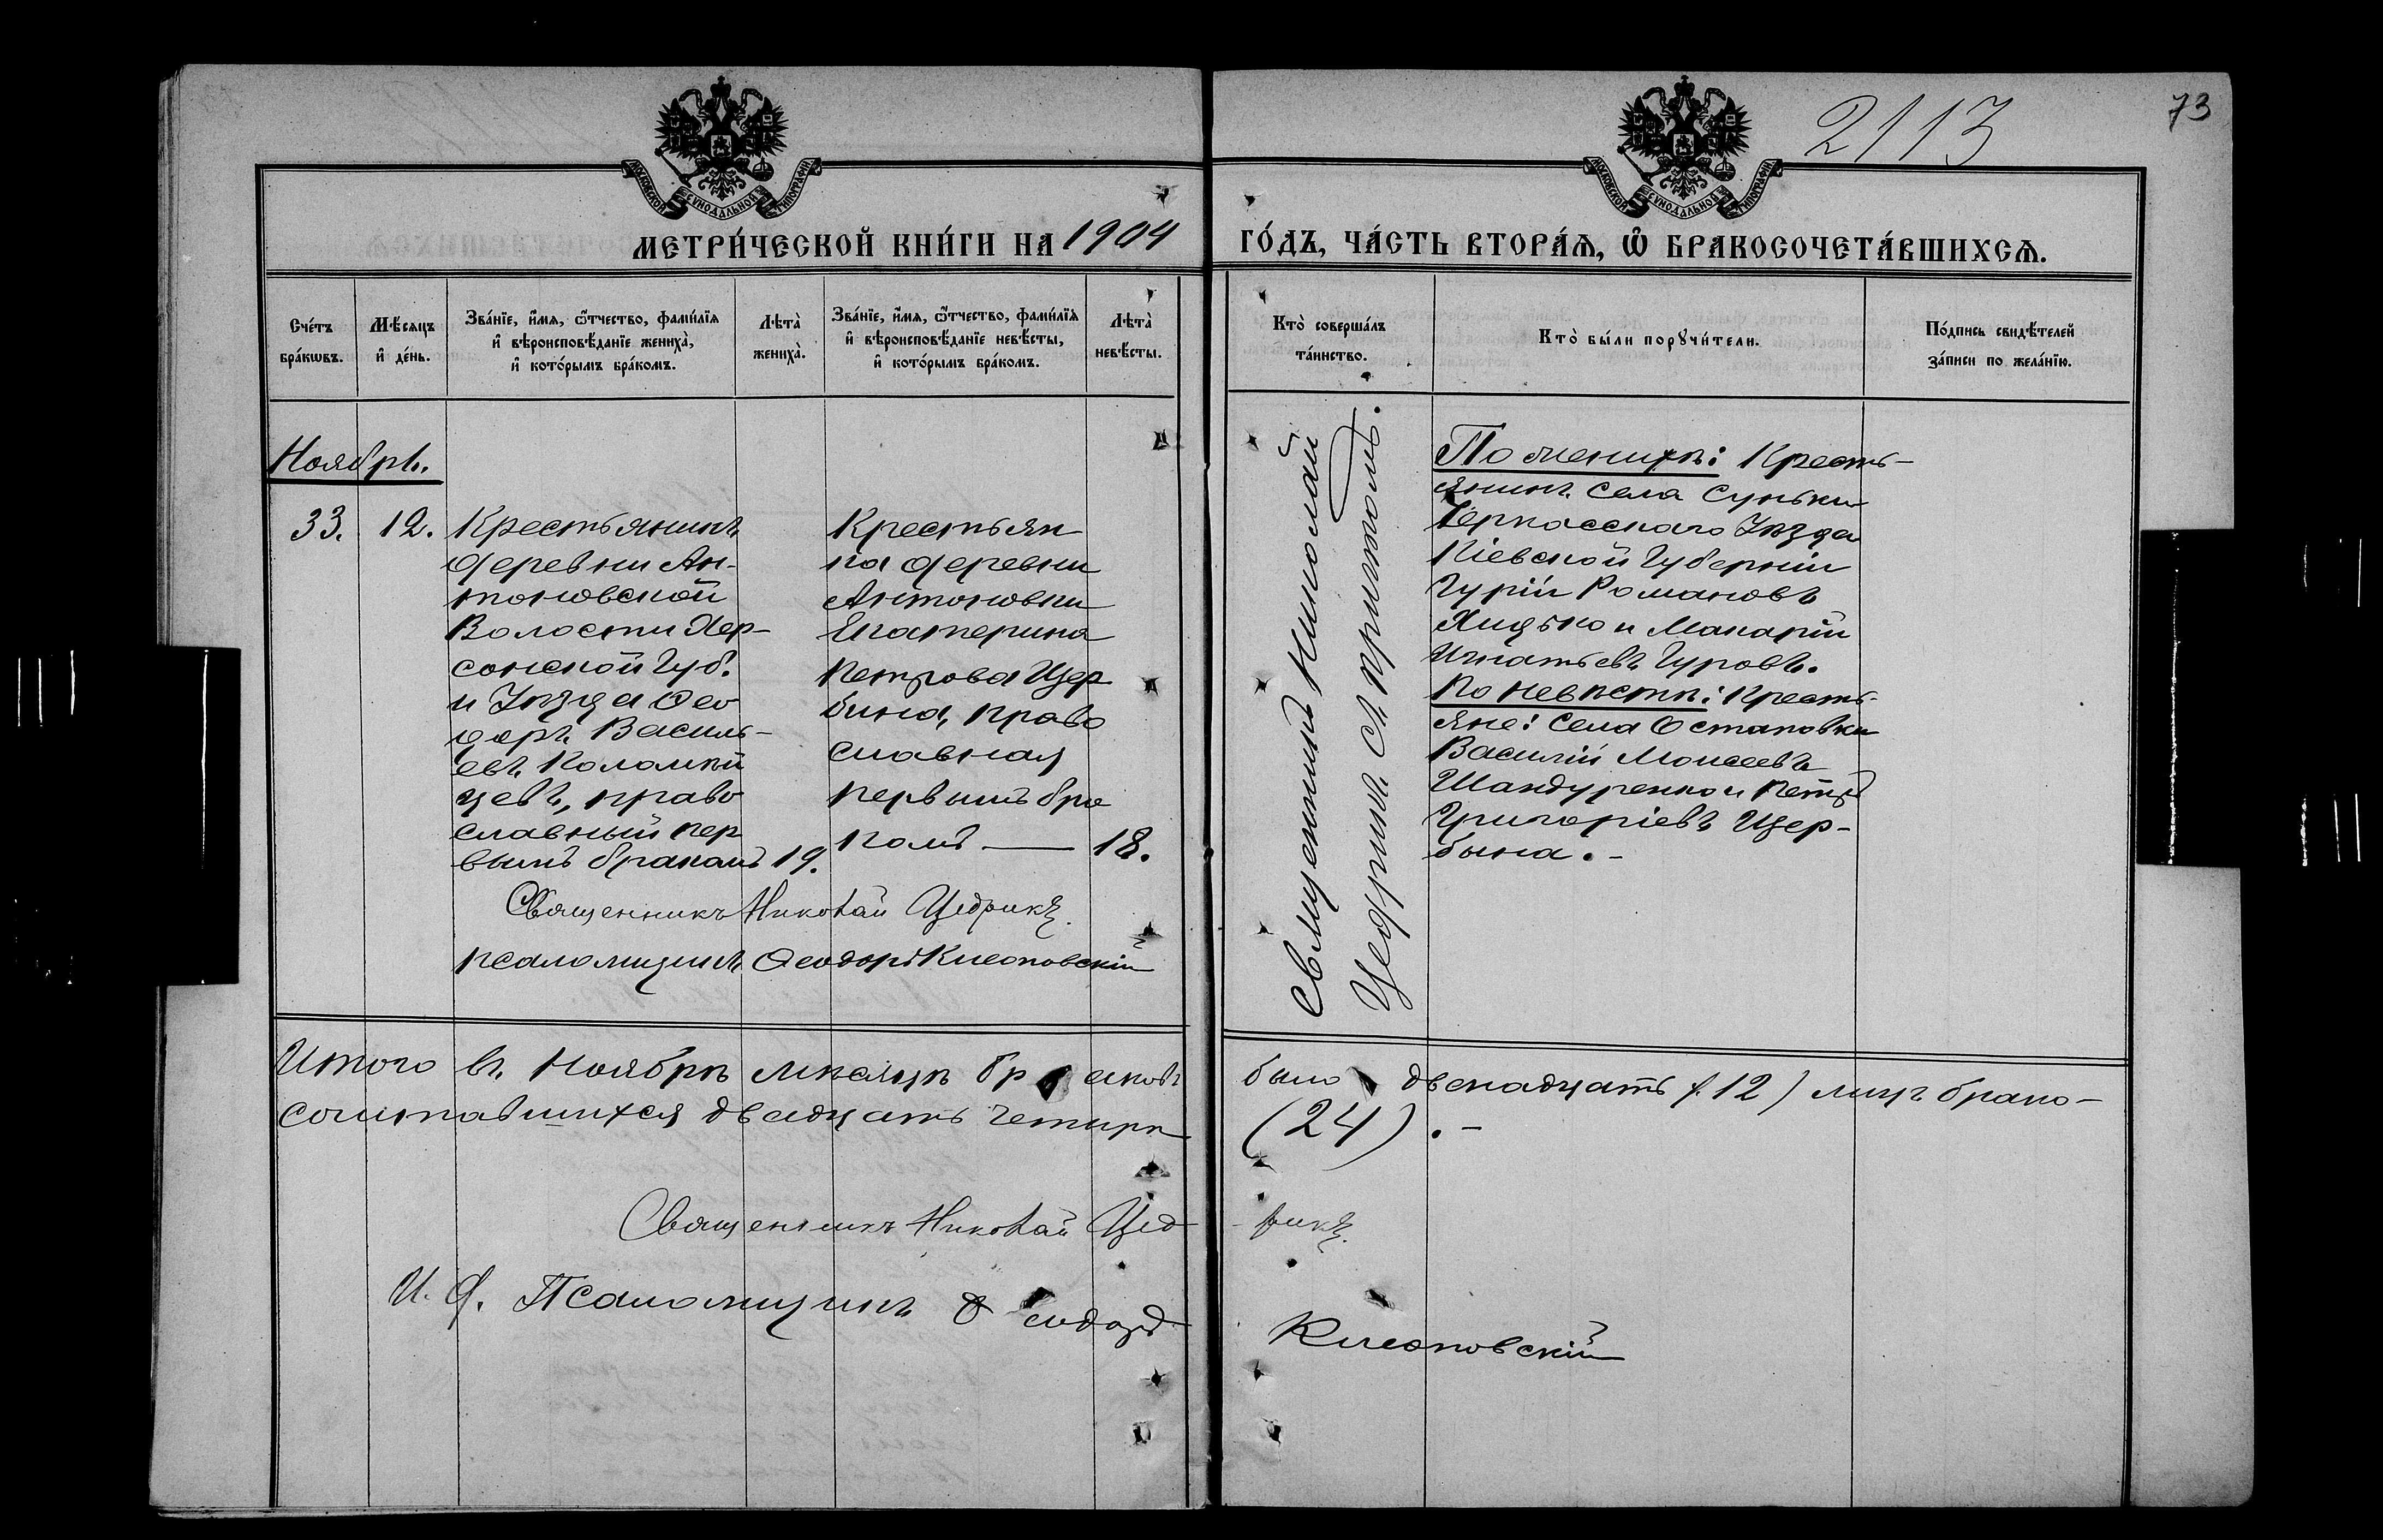 2113
73
МОСКОВСКОЙ СѴНОДАЛЬНОЙ ТИПОГРАФІИ
МОСКОВСКОЙ СѴНОДАЛЬНОЙ ТИПОГРАФІИ
МЕТРИ́ЧЕСКОЙ КНИ́ГИ НА 1904
ГО́ДЪ, ЧА́СТЬ ВТОРА́Ѧ, Ѽ БРАКОСОЧЕТА́ВШИХСѦ.
Сче́тъ бра́кѡвъ.
Мѣ́сяцъ и҆ де́нь.
Зва́нїе, и҆́мя, ѻ҆́тчество, фами́лїя
и҆ вѣроисповѣ́данїе жениха̀,
и҆ кото́рымъ бра́комъ.
Лѣта̀ жениха̀.
Зва́нїе, и҆́мя, ѻ҆́тчество, фами́лїя
и҆ вѣроисповѣ́данїе невѣ́сты,
и҆ кото́рымъ бра́комъ.
Лѣта̀ невѣ́сты.
Кто̀ соверша́лъ
та́инство.
Кто̀ бы́ли порꙋчи́тели.
По́дпись свидѣ́телей
за́писи по жела́нїю.
Ноябрь.
33.
12.
Крестьянинъ
деревни Ан-
тоновской
Волости Хер-
сонской Губ.
и Уѣзда Ѳео
доръ Василь-
евъ Коломій
цевъ, право
славный пер
вымъ бракомъ
19.
Крестьян
ка деревни
Антоновки
Екатерина
Петрова Щер
бина, право
славная
первымъ бра
комъ —
18.
Священникъ Николай
Цедрикъ съ причтомъ.
По женихѣ: Кресть-
янинъ села Суньки
Черкасскаго Уѣзда
Кіевской Губерніи
Гурій Романовъ
Яцько и Макарій
Игнатьевъ Гуровъ.
По невѣстѣ: Кресть-
яне: села Остаповки
Василій Моисеевъ
Шандуренко и Петръ
Григоріевъ Щер-
бына. -
Священникъ Николай Цедрикъ.
псаломщикъ Ѳеодоръ
Итого въ Ноябрѣ мѣсяцѣ браковъ было двенадцать (12) лицъ брако-
сочитавшихся двадцать четыре (24). -
Священникъ Николай Цед-рикъ.
И. д. Псаломщикъ Ѳеодоръ